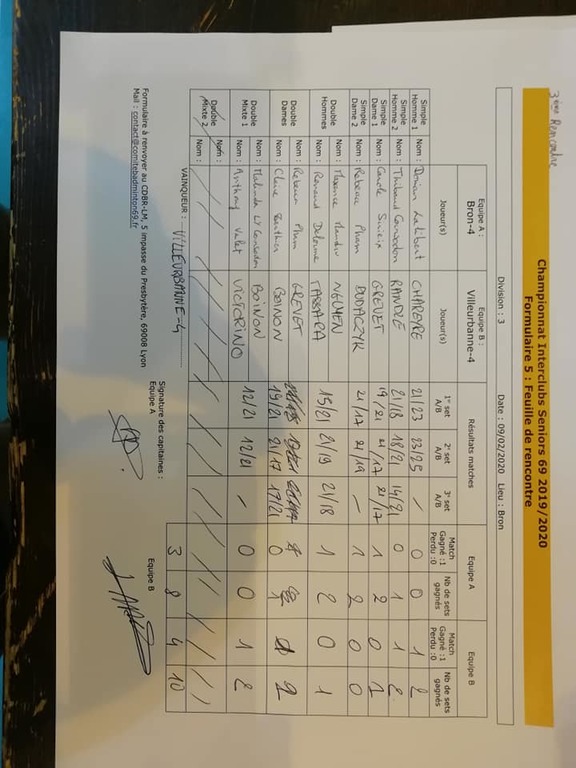 3ème Rencontre
Championnat Interclubs Seniors 69 2019/2020
Formulaire 5 : Feuille de rencontre
Division : 3 Date : 09/02/2020 Lieu : Bron
Equipe A : Bron-4 Equipe B : Villeurbanne-4 Résultats matches Equipe A Equipe B
Joueur(s) Joueur(s) 1er set A/B 2e set A/B 3e set A/B Match Gagné :1 Perdu :0 Nb de sets gagnés Match Gagné :1 Perdu :0 Nb de sets gagnés
Simple Homme 1 Nom : CHAREYRE 21/23 23/25 / 0 0 1 2
Simple Homme 2 Nom : Thibaud RANDLE 21/18 18/21 14/21 0 1 1 2
Simple Dame 1 Nom : Carole GREVET 19/21 21/17 21/17 1 2 0 1
Simple Dame 2 Nom : Rebecca Pham DUDACZYK 21/17 21/19 — 1 2 0 0
Double Hommes Nom : Maxence NGUYEN
Nom : Renaud Delorme TASSARA 15/21 21/19 21/18 1 2 0 1
Double Dames Nom : Rebecca Pham GREVET
Nom : BOINON 19/21 21/17 17/21 0
Double Mixte 1 Nom : BOINON
Nom : Anthony Valet VICTORINO 12/21 12/21 / 0 0 1 2
Double Mixte 2 Nom :
Nom :
VAINQUEUR : VILLEURBANNE-4 3 8 4 10
Signature des capitaines :
Equipe A Equipe B
Formulaire à renvoyer au CDBR-LM, 5 impasse du Presbytère, 69008 Lyon
Mail : contact@comitebadminton69.fr